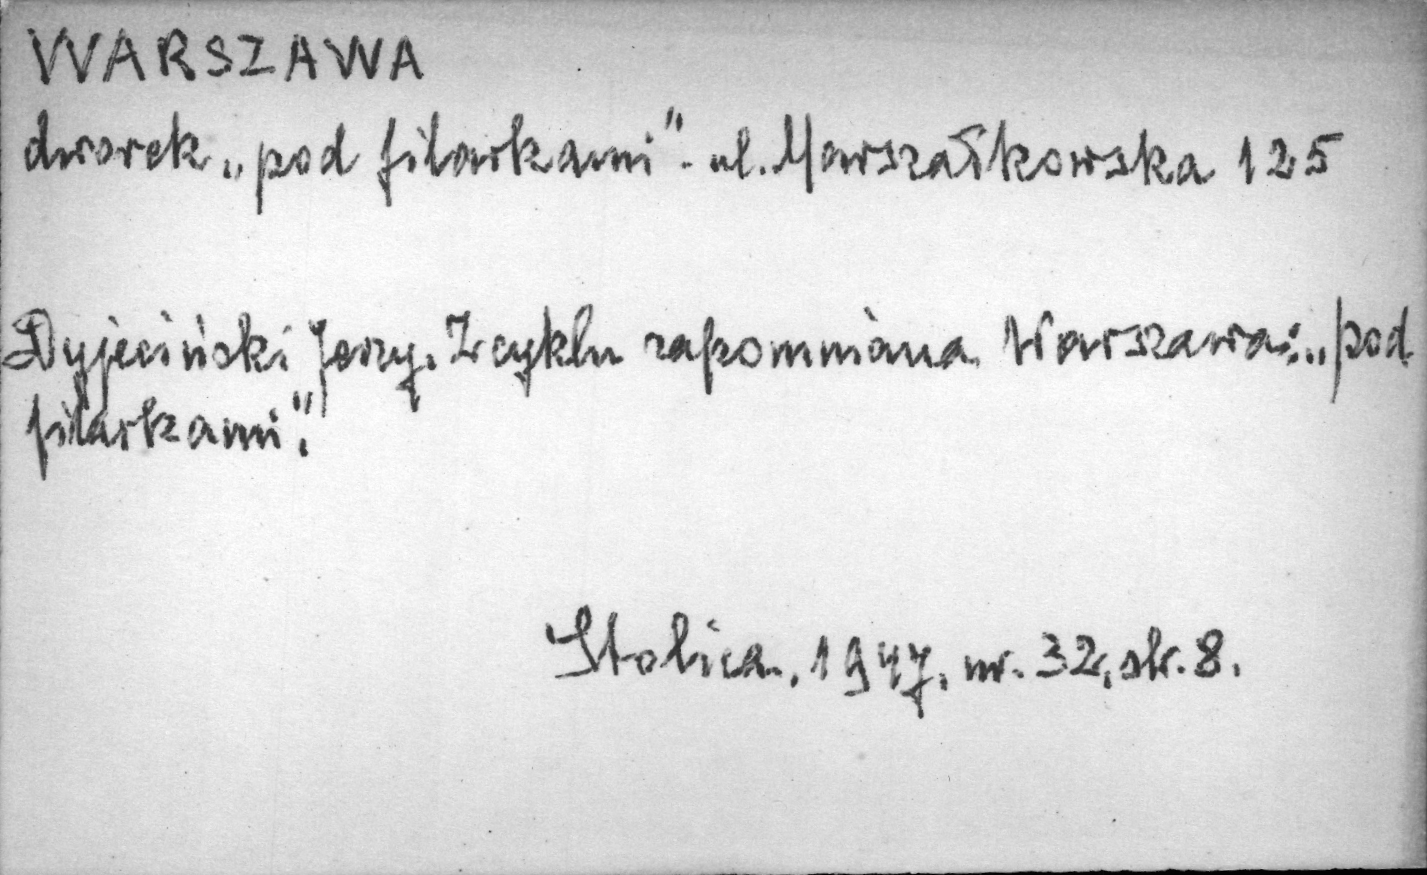 WARSZAWA
dworek „pod filarkami". ul. Marszałkowska 125
Dyjeciński Jerzy. Z cyklu zapomniana Warszawa: „pod
filarkami".
Stolica, 1947, nr. 32, str. 8.